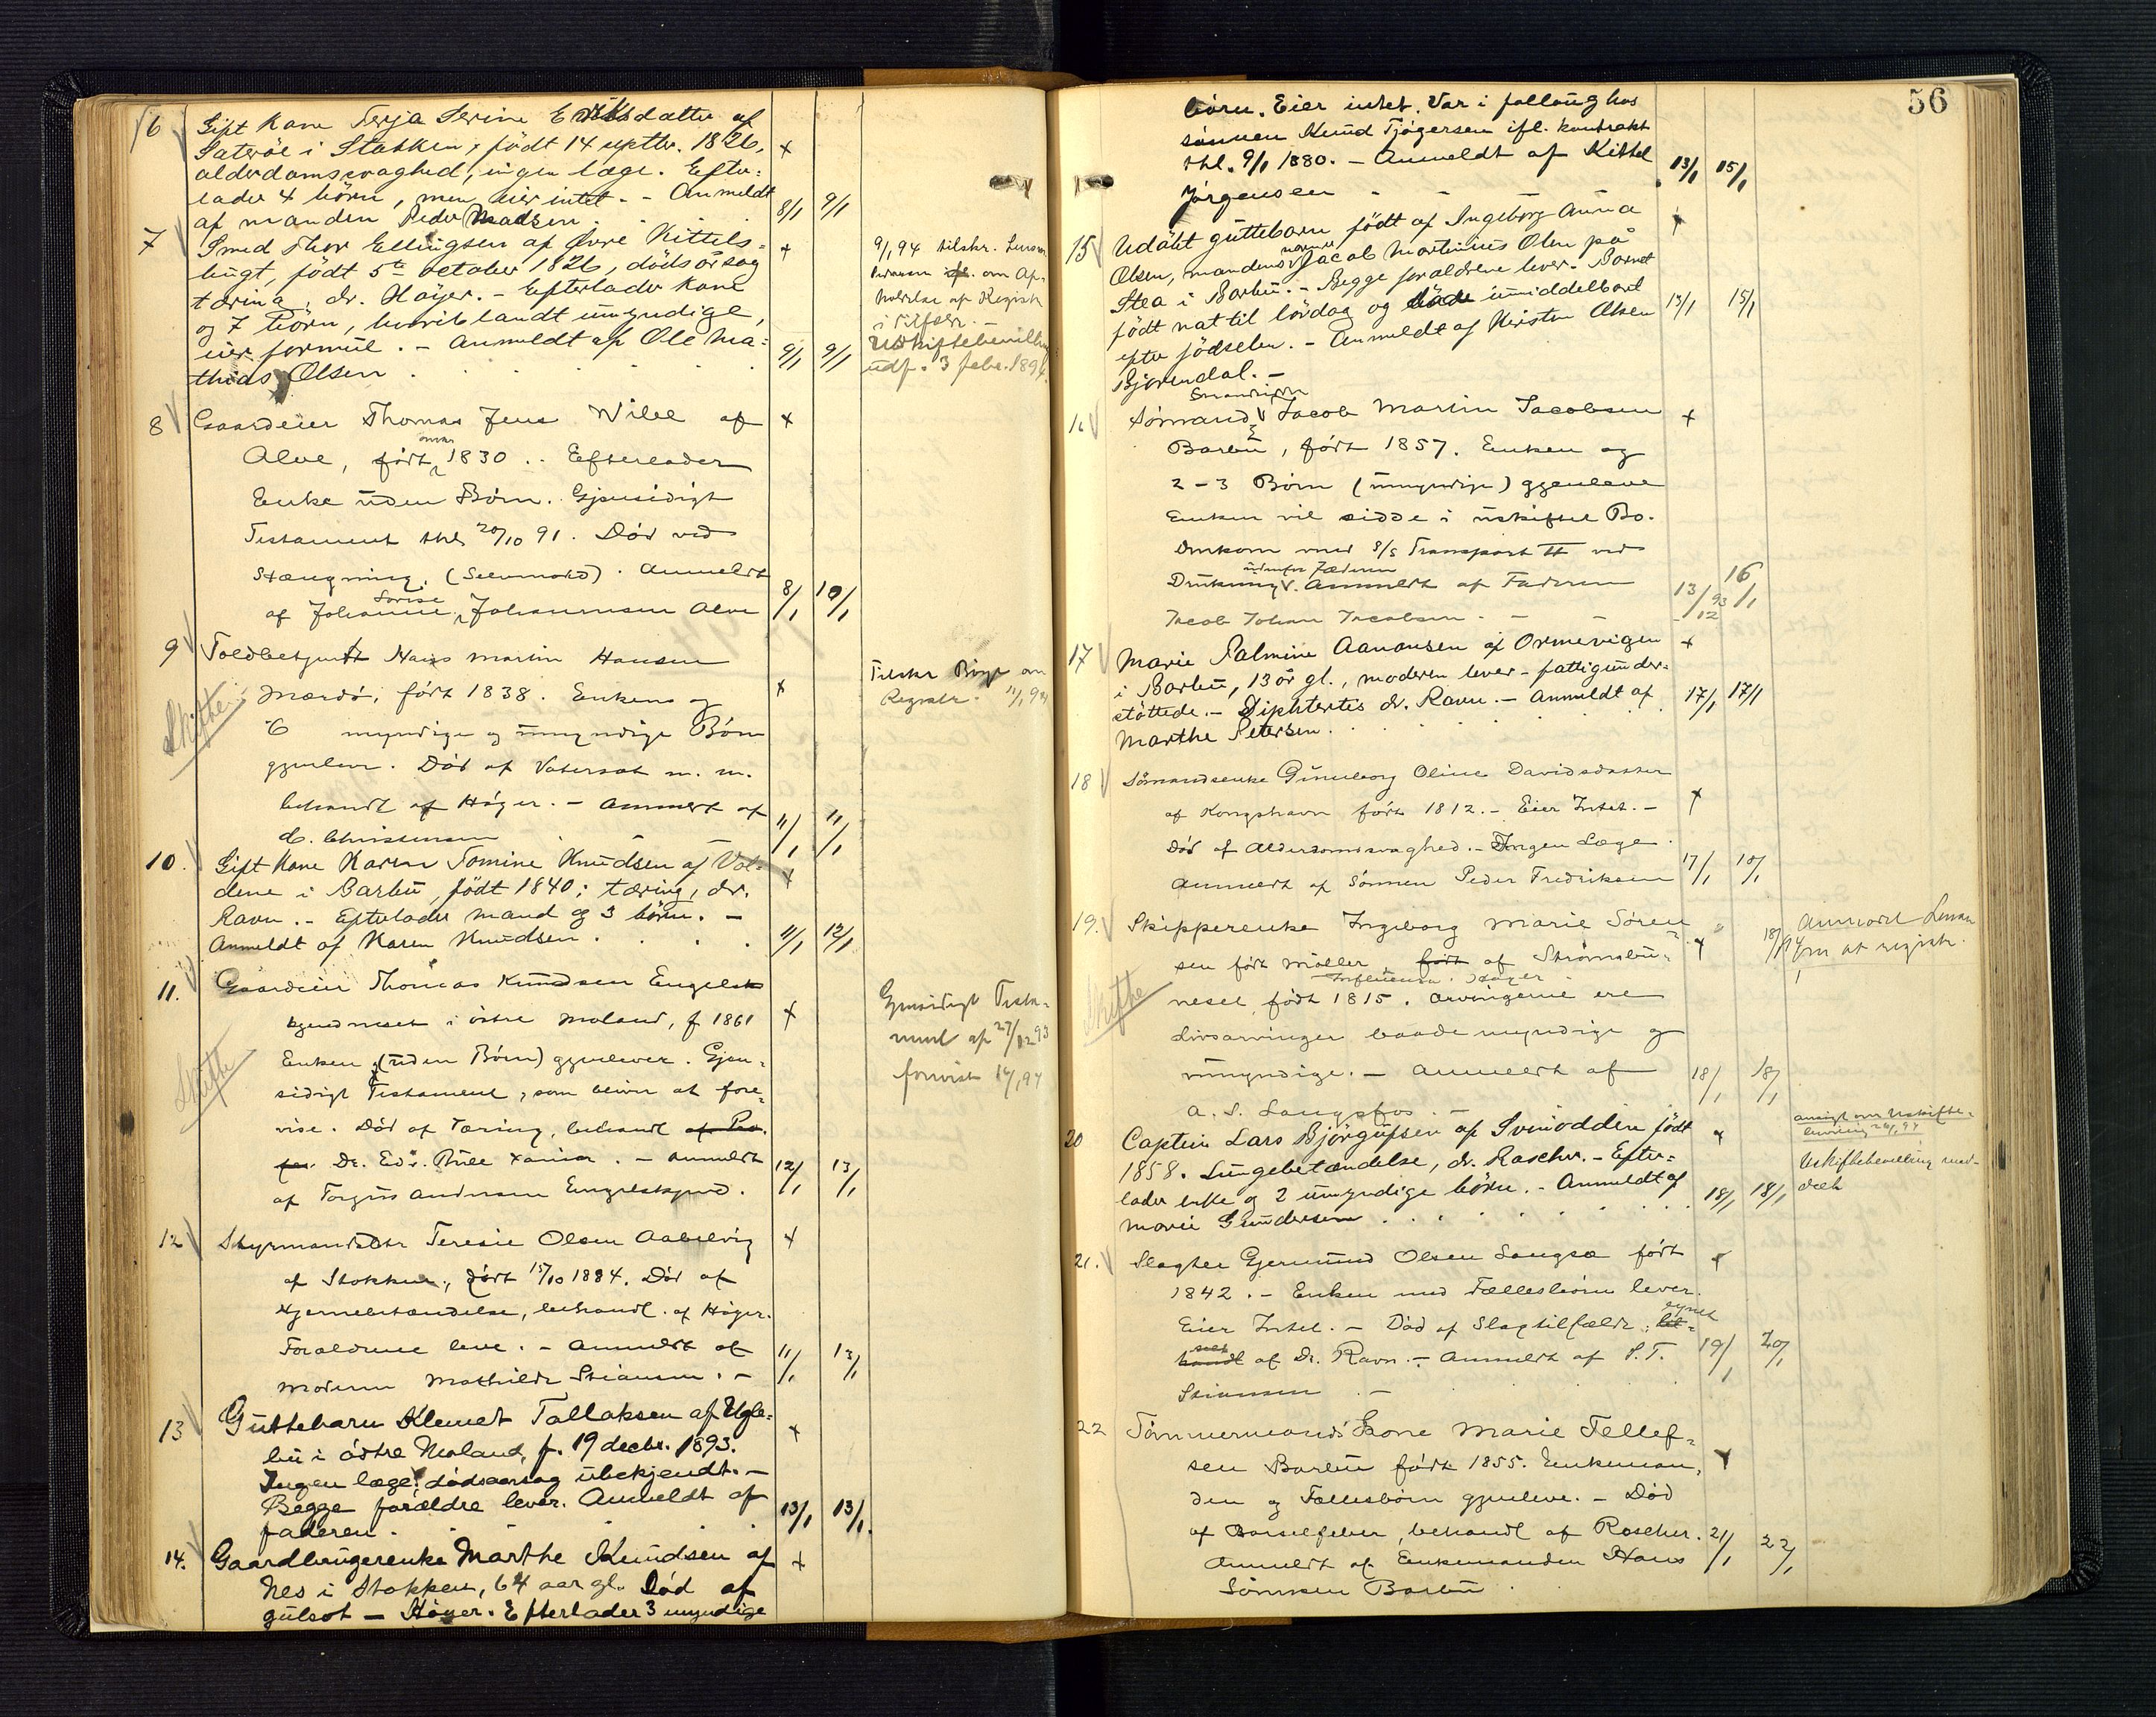 6 Gift Kone Terja Serine Eriksdatter af
Saterøe i Stokken, født 14 septbr. 1826, +
alderdomssvaghed, ingen læge. Efter-
lader 4 börn, men eier intet. - Anmeldt
af manden Peder Madsen . . 8/1 9/1
7 Smed Thor Ellingsen af Øvre Kittels- +
bugt, født 5te october 1826, dödsårsag
tæring, dr. Høyer. - Efterlader kone
og 7 Börn, hvoriblandt umyndige,
eier formue. - Anmeldt af Ole Ma-
thias Olsen . . . . . 9/1 9/1
9/1 94 tilskr. Lensm
om Af-
holdelse af Registr
i Tilfælde. -
Uskiftebevilling
udf. 3 febr. 1894.
8 Gaardeier Thomas Jens Wille af +
Alve, født omkr 1830 .. Efterlader
Enke uden Börn. Gjensidigt
Testament thl. 20/10 91. Död ved
Hængning. (Selvmord). Anmeldt
af Johanne Sovise Johannesen Alve 8/1 10/1
9 Toldbetjent Hans Martin Hansen
Mærdö, født 1838. Enken og +
6 myndige og umyndige Börn
gjenlever. Död af Vatersot m. m.
behandl af Höyer. - Anmeldt af
C. Christensen . . 11/1 11/1
Skifte
Tilskr Borge om
Registr. 11/1 94
10. Gift Kone Karen Tomine Knudsen af Vol-
dene i Barbu, født 1840; tæring, dr. +
Ravn. - Efterlader mand og 3 börn. -
Anmeldt af Karen Knudsen . . . . 11/1 12/1
11. Gaardeier Thomas Knudsen Engelsk
kjendneset i östre Moland, f 1861 +
Enken (uden Börn) gjenlever. Gjen-
sidigt Testament, som bliver at fore-
vise. Död af Tæring, behandl af
Dr. Edv. Bull . - Anmeldt
af Torgius Andersen Engelskjend. 12/1 13/1
Skifte
Gjensidigt Testa-
ment af 27/12 93
forevist 14/1 94
12 Styrmandsdtr Teresie Olsen Aabelvig +
af Stokken, født 15/10 1884. Död af
Hjernebetændelse, behandl. af Höyer.
Forældrene leve. - Anmeldt af
Moderen Mathilde Stiansen. - 11/1 13/1
13 Guttebarn Klemet Tallaksen af Ugle-
bu i östre Moland, f. 19 decbr. 1893. +
Ingen læge. dödsaarsag übekjendt. -
Begge forældre lever. Anmeldt af
faderen . . . . . 13/1 13/1.
14. Gaardbrugerenke Marthe Knudsen af +
Nes i Stokken, 64 aar gl. död af
gulsot - Höyer. Efterlader 3 myndige
56
börn. Eier intet. Var i follaug hos
sönnen Knud Tjøgersen ifl. kontrakt
thl. 9/1 1880. - Anmeldt af Kittel
Jørgensen - - 13/1 15/1
15 Udöbt guttebarn født af Ingeborg Anna +
Olsen, mandens navn Jacob Martinus Olsen på
Stea i Barbu. - Begge forældrene lever. Barnet
født nat til lördag og döde umiddelbart
efter födselen. - Anmeldt af Kirsten Olsen 13/1 15/1
Bjorendal. -
16 Sömand Jacob Martin Jacobsen +
Barbu, født 1857. Enken og
2-3 Börn (umyndige) gjenleve
Enken vil sidde i uskiftet Bo.
Omkom med S/S Transport II ved
Drukning udenfor Jæderen. Anmeldt af Faderen
Jacob Johan Jacobsen - - 13/12 93 16/1
17 Marie Palmine Aanonsen af Ormevigen +
i Barbu, 13 år gl., moderen lever - fattigunder-
støttede. - Diphteritis dr. Ravn. - Anmeldt af 17/1 17/1
Marthe Petersen . . . . . .
18 Sömandsenke Gunneborg Oline Davidsdatter
af Kongshavn født 1812. - Eier Intet. - +
Död af Alderdomssvaghed. - Ingen Læge.
Anmeldt af Sönnen Peder Fredriksen 17/1 18/1
19. Skipperenke Ingeborg Marie Sören-
sen født Möller født af Strömsbu- +
neset, født 1815. Influenza. Arvingerne ere
Livsarvinger baade myndige og
umyndige. - Anmeldt af 18/1 18/1
A. S. Langsfos. -
Skifte
18/1 94 Anmodet Lensm
om at registr.
20 Captein Lars Björgufsen af Svinodden født +
1858. Lungebetændelse, dr. Roscher. - Efter-
lader enke og 2 umyndige börn. - Anmeldt af
Marie Gundersen . . . . . . 18/1 18/1
Uskiftebevilling med-
delt
21. Slagter Gjermund Olsen Langsæ født +
1842. - Enken med Fællesbörn lever.
Eier Intet. - Död af Slagtilfælde; synet
af Dr. Ravn. - Anmeldt af S. T. 19/1 20/1
Stiansen . -
22 Tömmermands Kone Marie Tellef-
sen Barbu født 1855. Enkeman- +
den og Fællesbörn gjenleve. - Död
af Barselfeber, behandl af Roscher. 21/1 22/1
Anmeldt af Enkemanden Hans
Sörensen Barbu .